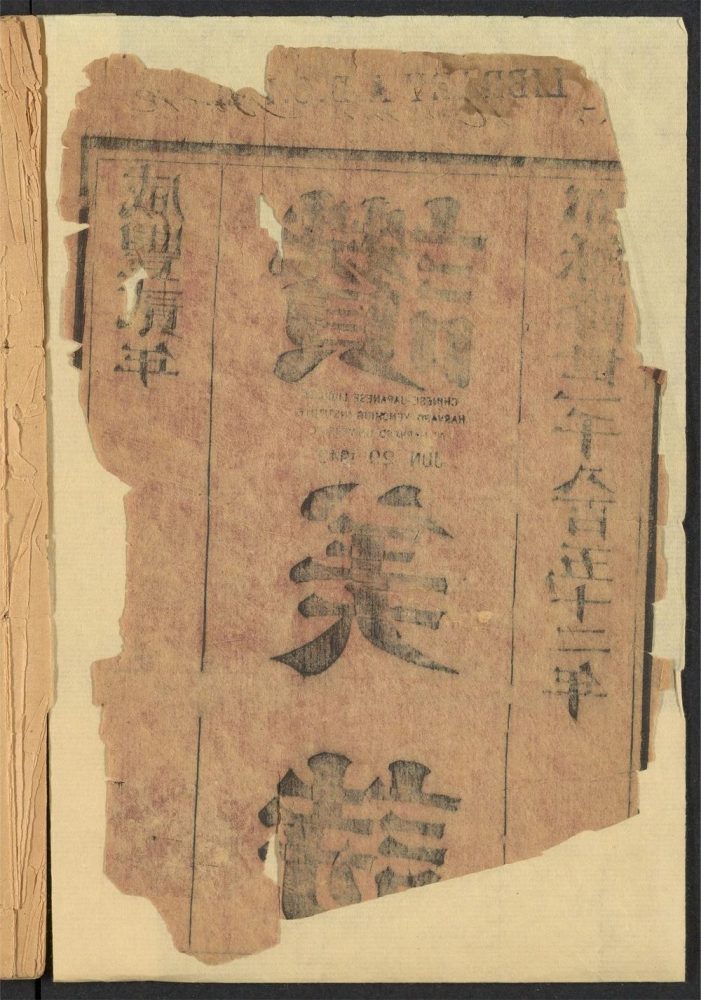 LIBRARY A.B.C.F.
耶穌降世一千八百五十二年
讚美詩
咸豐貳年
CHINESE-JAPANESE LIBRARY
HARVARD-YENCHING INSTITUTE
AT HARVARD UNIVERSITY
JUN 29